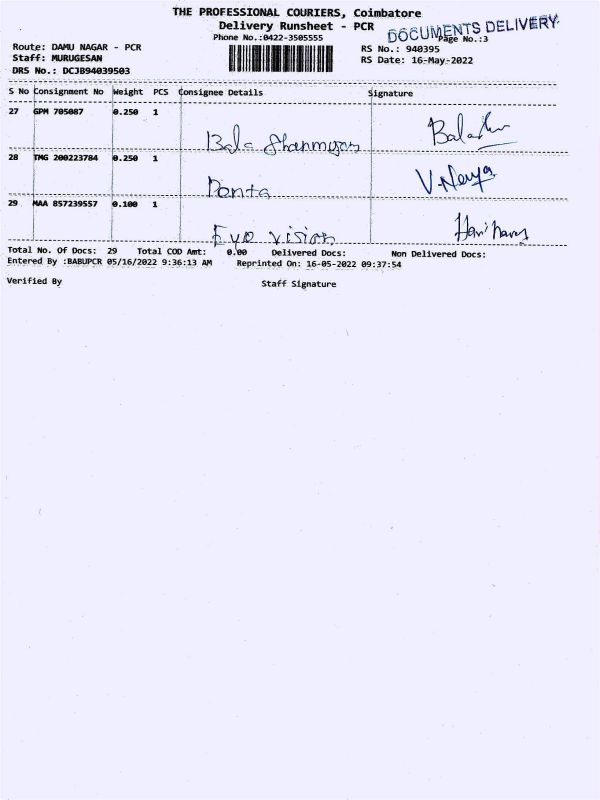 THE PROFESSIONAL COURIERS, Coimbatore
Delivery Runsheet - PCR
DOCUMENTS DELIVERY
Phone No.:0422-3505555
Page No.:3
Route: DAMU NAGAR - PCR
RS No.: 940395
Staff: MURUGESAN
RS Date: 16-May-2022
DRS No.: DCJB94039503
S No Consignment No Weight PCS Consignee Details Signature
27 GPM 705087 0.250 1
Bala Shanmugam
28 TMG 200223784 0.250 1
V.Nenya
29 MAA 857239557 0.100 1
Eye vision
Total No. Of Docs: 29 Total COD Amt: 0.00 Delivered Docs: Non Delivered Docs:
Entered By :BABUPCR 05/16/2022 9:36:13 AM Reprinted On: 16-05-2022 09:37:54
Verified By Staff Signature